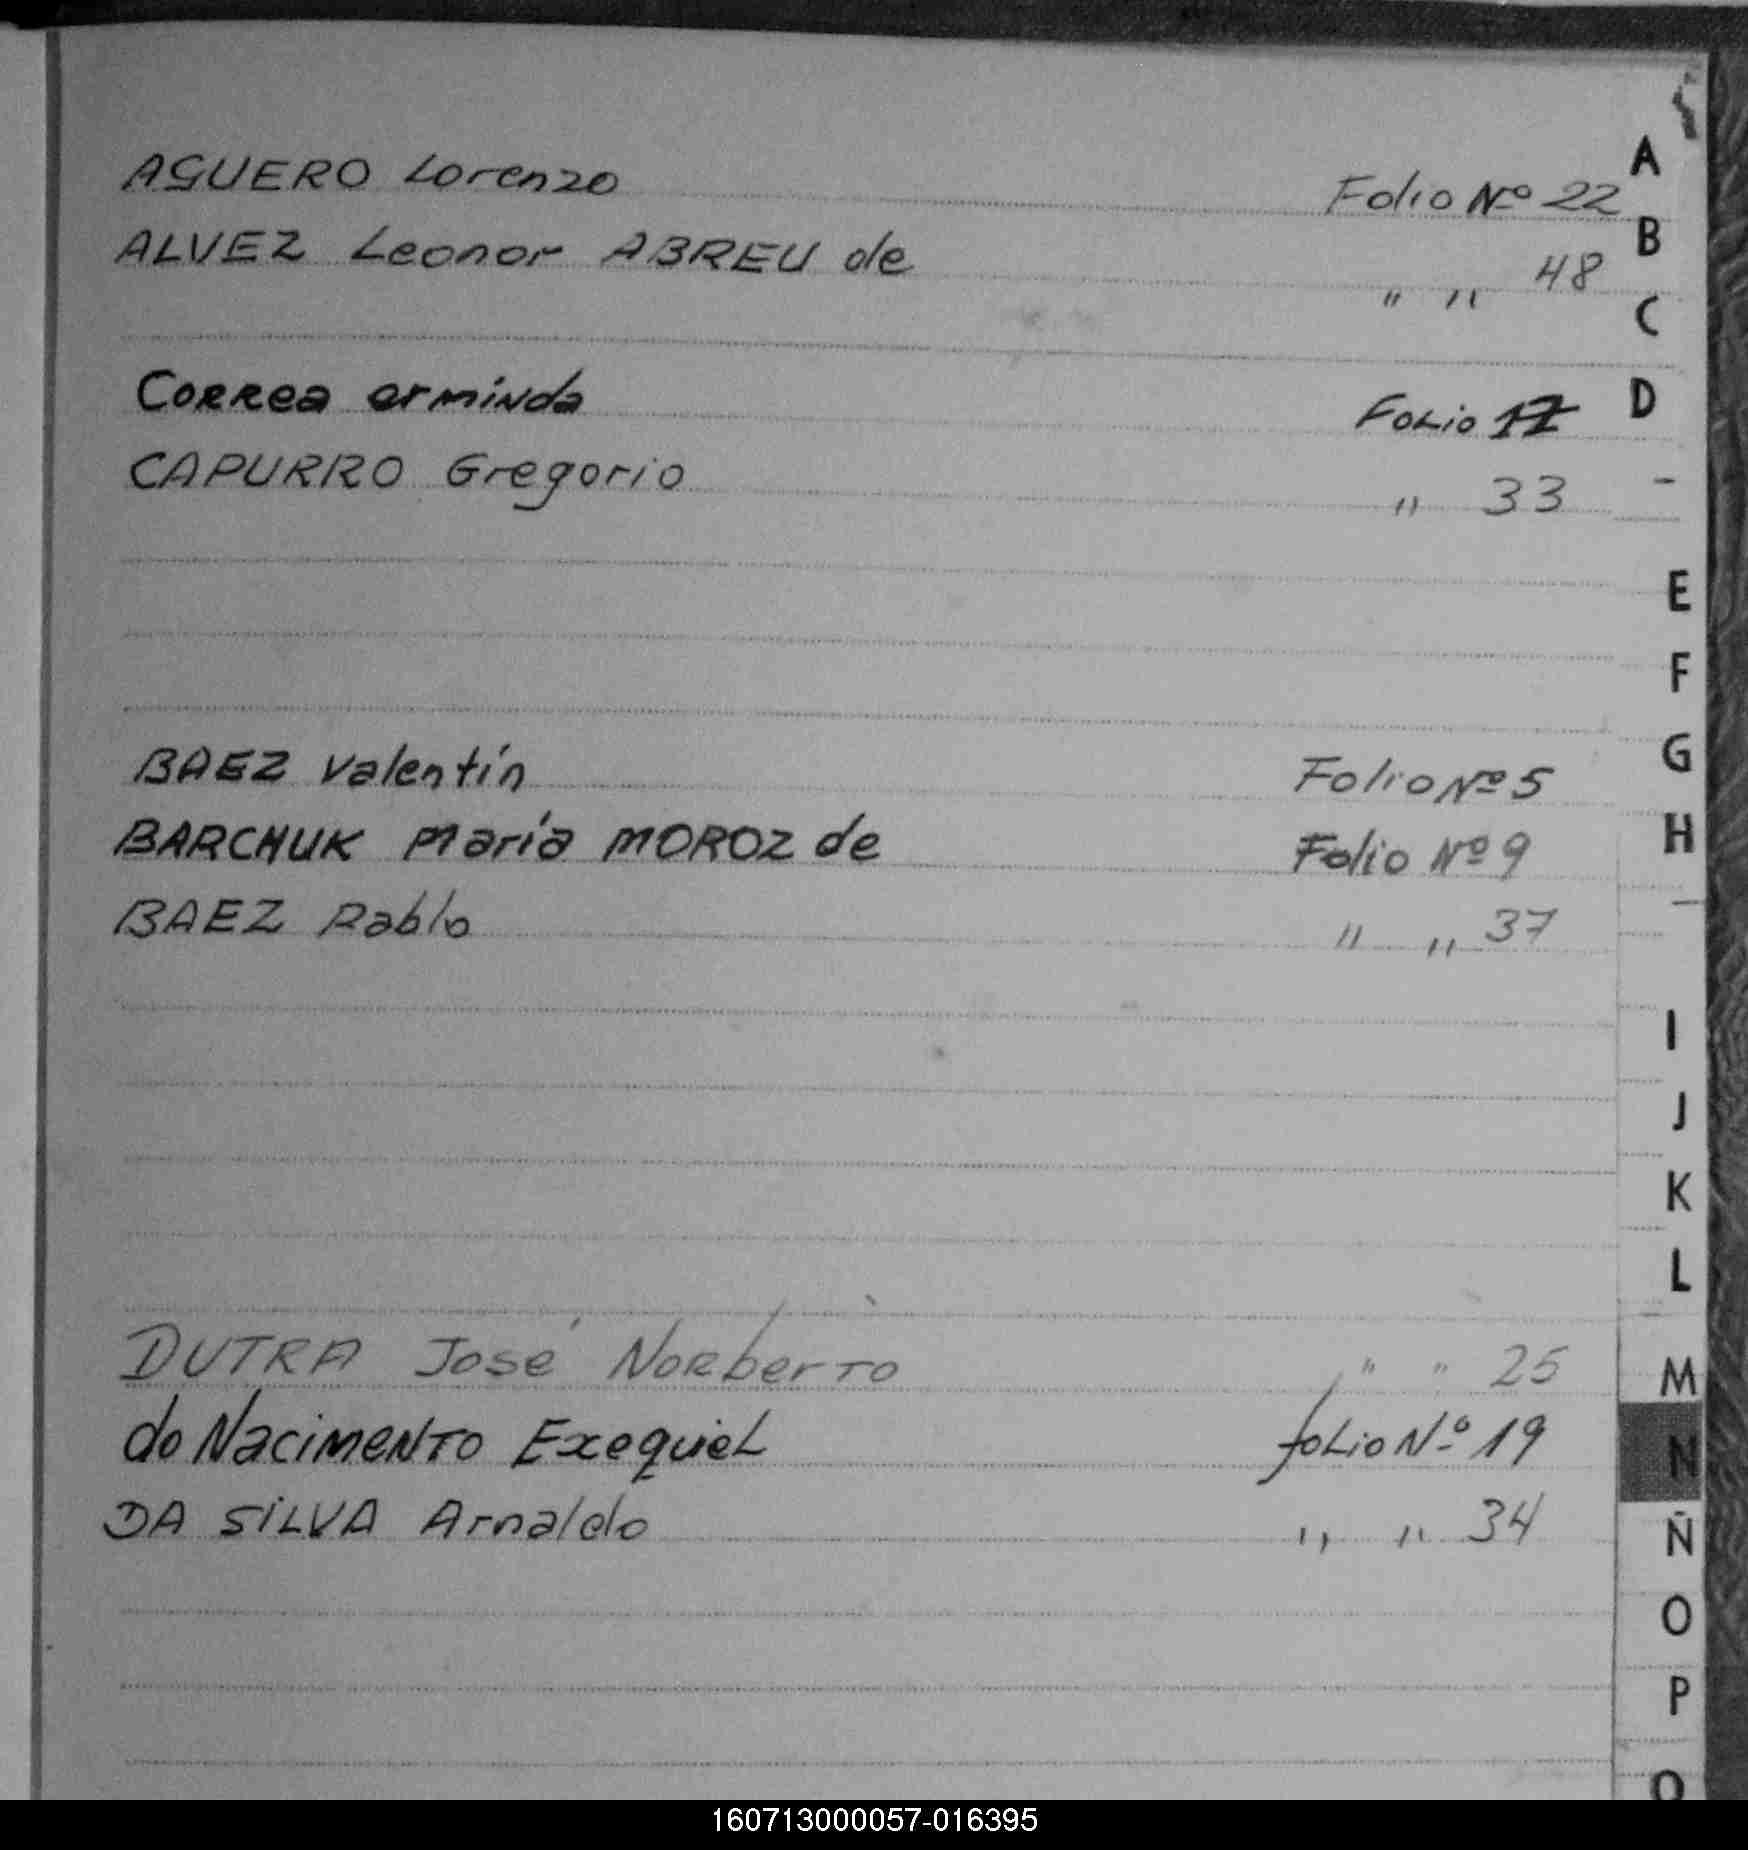 AGUERO Lorenzo Folio Nº 22
ALVEZ Leonor ABREU de " " 48
Correa erminda Folio 17
CAPURRO Gregorio " 33
BAEZ Valentín Folio Nº 5
BARCHUK María MOROZ de Folio Nº 9
BAEZ Pablo " " 37
DUTRA José Norberto " " 25
do Nacimento Exequiel folio Nº 19
DA SILVA Arnaldo " " 34
A
B
C
D
E
F
G
H
I
J
K
L
M
N
Ñ
O
P
Q
160713000057-016395